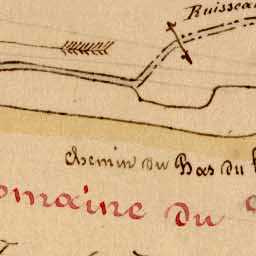 Ruissea
chemin du Bas du
omaine du